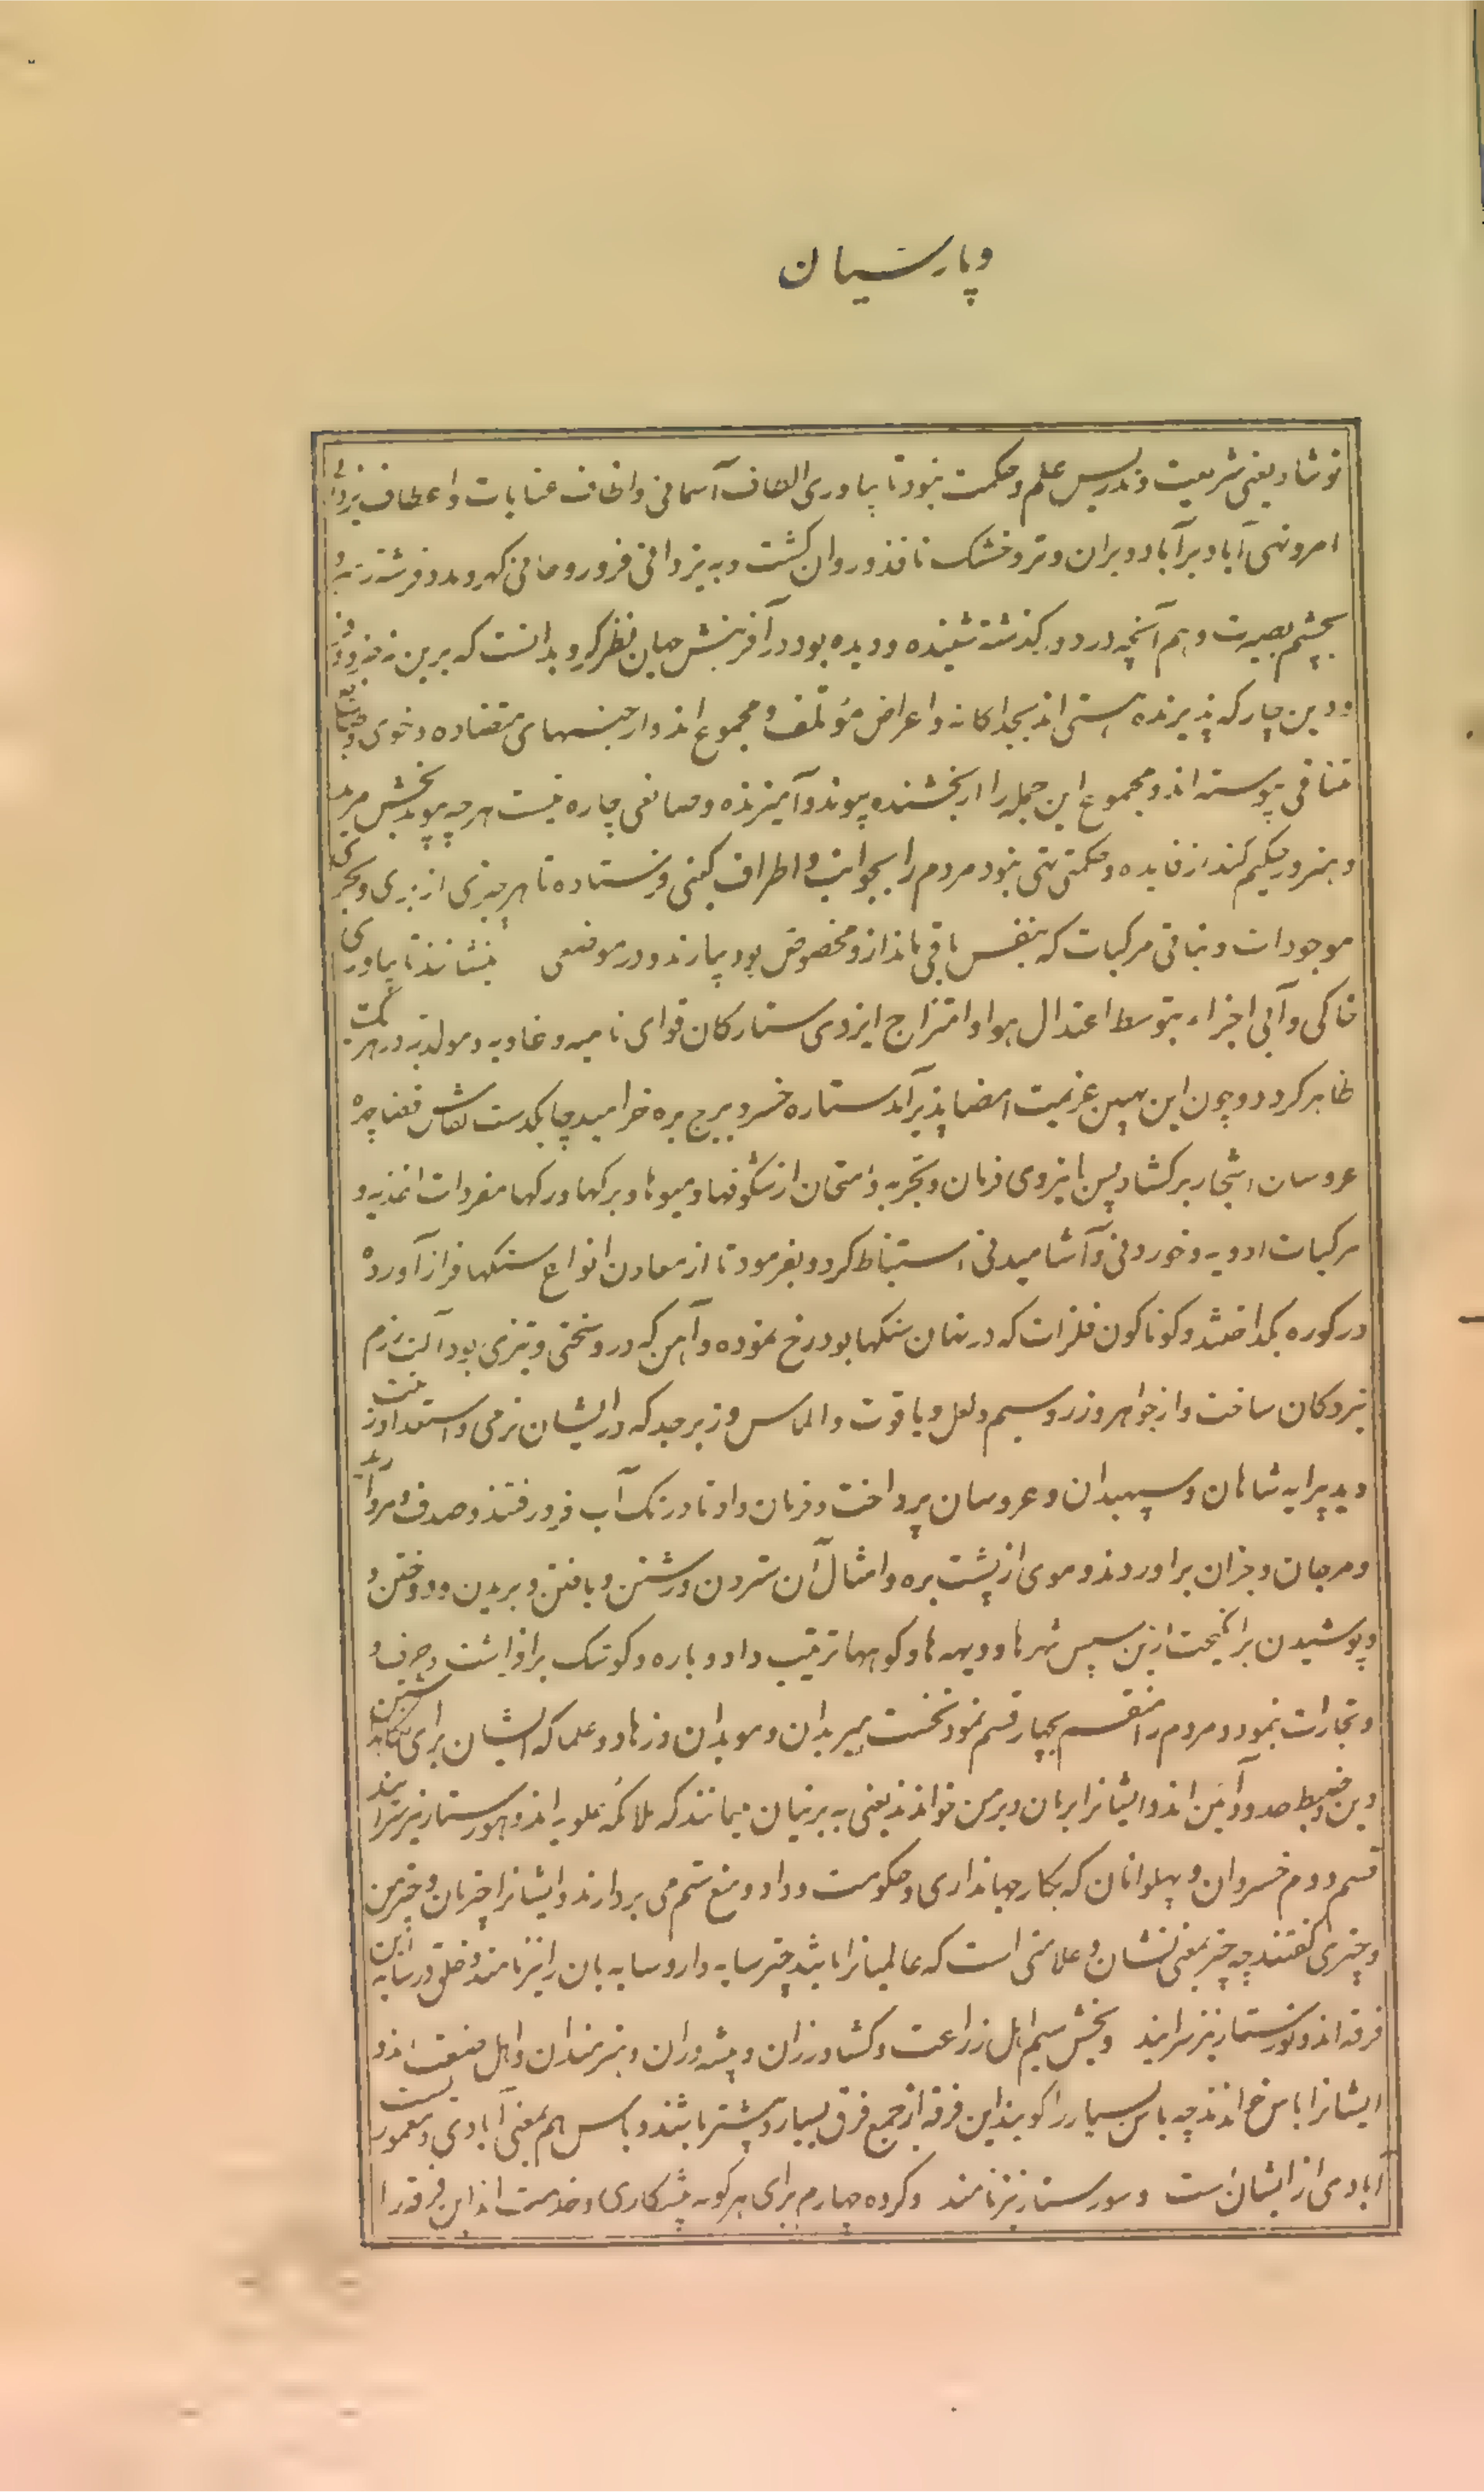 وپارسیان
نوشاد یعنی شریعت و تدریس علم و حکمت نبود تا بیاوری الطاف آسمانی و الطاف عنایات و اعطاف یزدانی
امر و نهی آباد بر آباد و بران و تر و خشک نافذ و روان گشت و به یزدانی فر و روحانی
بچشم بصیرت و هم آنچه در دور گذشته شنیده و دیده بود در آفرینش جهان نظر کرد و بدانست که برین نه
و دین چار که پذیرنده هستی اند بجداگانه و اعراض مؤتلف و مجموع اند و از جنسهای متضاده و خوی
متنافی پیوسته اند و مجموع این جمله را از بخشنده پیوند و آمیزنده و صانعی چاره نیست هرچه پیوند بخش
و هنرور حکیم کند از فایده و حکمتی تهی نبود مردم را بجوانب و اطراف گیتی فرستاده تا هر چیزی از بری و بحری
موجودات و نباتی مرکبات که بنفس باقی ماند از و مخصوص بود بیارند و در موضعی بنشانند تا بیاوری
خاکی و آبی اجزاء بتوسط اعتدال هوا و امتزاج ایزدی ستارگان قوای نامیه و غاذیه و مولده در هر یک
ظاهر گردد و چون این بهین عزیمت امضا پذیر آمد ستاره خسرو ببرج بره خرامید چابکدست نقاش قضا چهره
عروسان اشجار برگشاد پس با یزدی فرمان و تجربه و امتحان از شگوفها و میوها و برگها و رگها مفردات اغذیه و
مرکبات ادویه و خوردنی و آشامیدنی استنباط کرد و بفرمود تا از معادن انواع سنگها فراز آورده
در کوره بگداختند و گوناگون فلزات که در نهان سنگها بود رخ نموده و آهن که درو سختی و تیزی بود آلت رزم
نبردگان ساخت و از جواهر و زر و سیم و لعل و یاقوت و الماس و زبرجد که در ایشان نرمی و استعداد زینت
دید پیرایه شاهان و سپهبدان و عروسان پرداخت و فرمان داد تا در تک آب فرو رفتند و صدف و مروارید
و مرجان و جز آن برآوردند و موی از پشت بره و امثال آن ستردن و رشتن و بافتن و بریدن و دوختن و
و پوشیدن برانگیخت ازین سپس شهرها و دیهه ها و کویها ترتیب داد و باره و کوشک برافراشت و حرف و
و تجارات نمود و مردم را منقسم بچهار قسم نمود نخست هیربدان و موبدان و زهاد و علما که ایشان برای نگاهداشتن
دین و ضبط حدود آئین اند و ایشانرا برمان و برمن خوانند یعنی به برینیان میمانند که ملائکه علویه اند و هورستار نیز سرایند
قسم دوم خسروان و پهلوانان که بکار جهانداری و حکومت و داد و منع ستم می پردازند و ایشانرا چترمان و چترمن
و چتری گفتند چه چتر بمعنی نشان و علامتی است که عالمیانرا باشد چتر سایه دار و سایه بان را نیز نامند و خلق در سایه این
فرقه اند و نورستار نیز سرایند و بخش سیم اهل زراعت و کشاورزان و پیشه وران و هنرمندان و اهل صنعت اند و
ایشانرا باس خوانند چه باس بسیار را گویند این فرقه از جمیع فرق بسیار و بیشتر باشند و باس هم بمعنی آبادی و معموریست
آبادی از ایشان است و سورستار نیز نامند و گروه چهارم برای هر گونه پیشکاری و خدمت اند این فرقه را